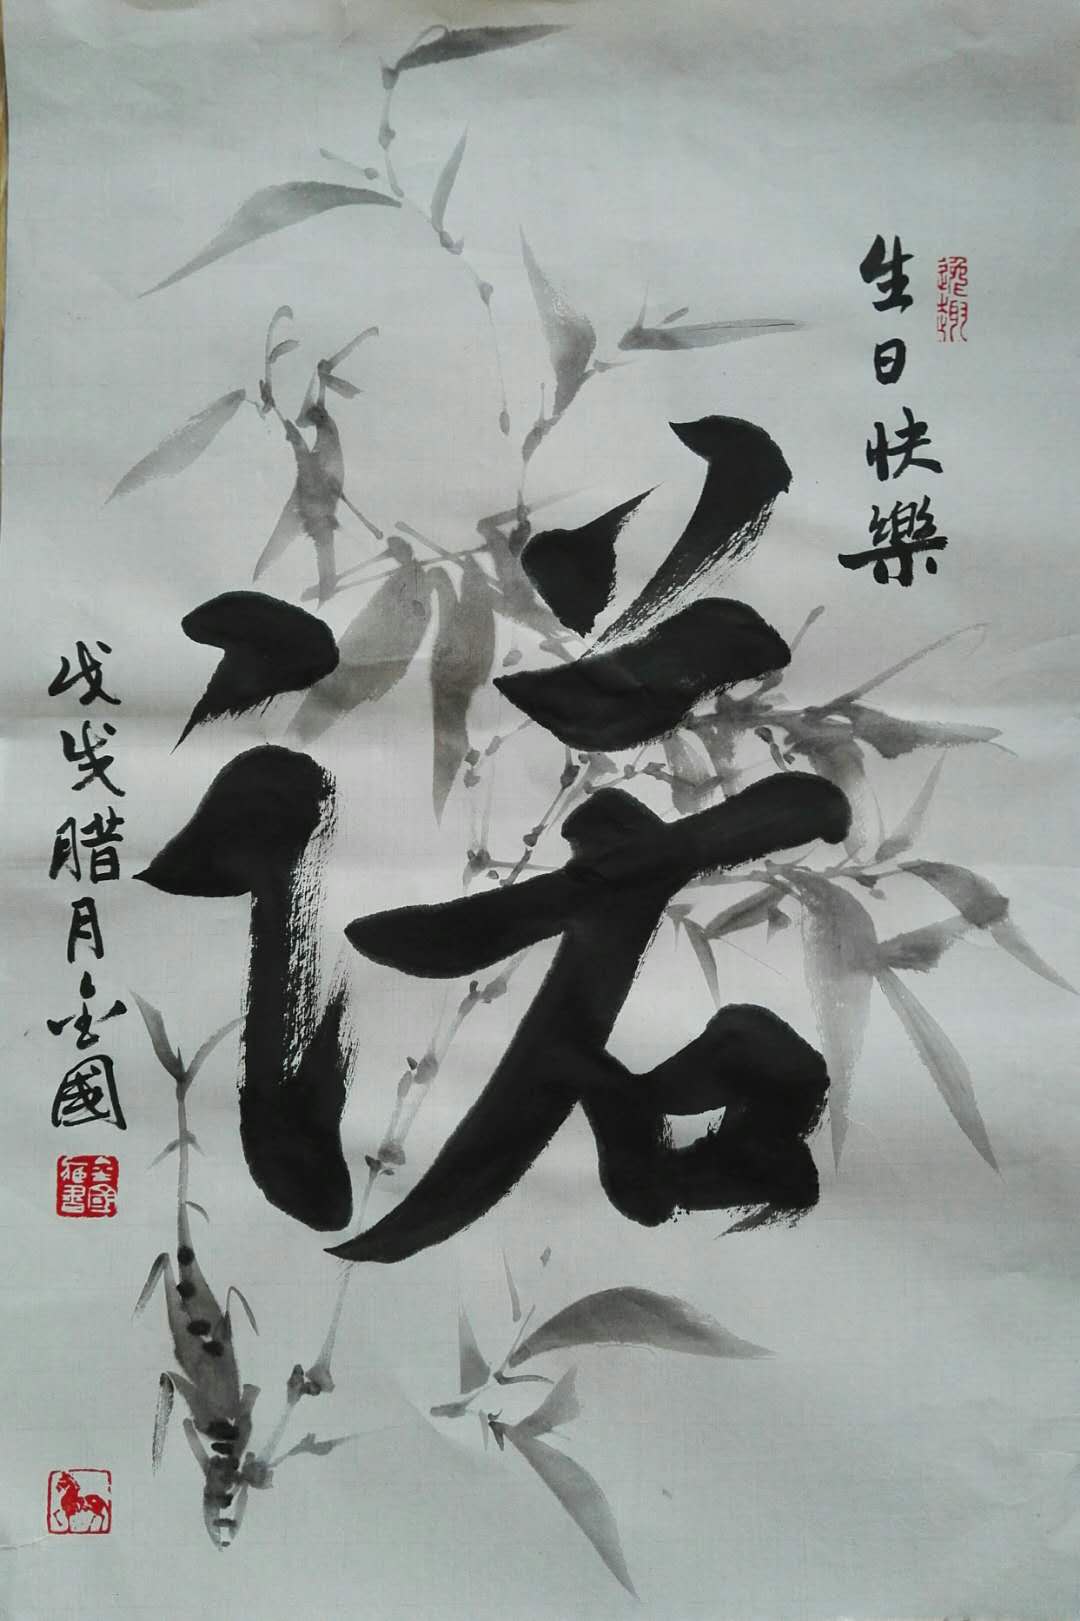 生日快樂
诺
戊戌腊月金國
逸趣